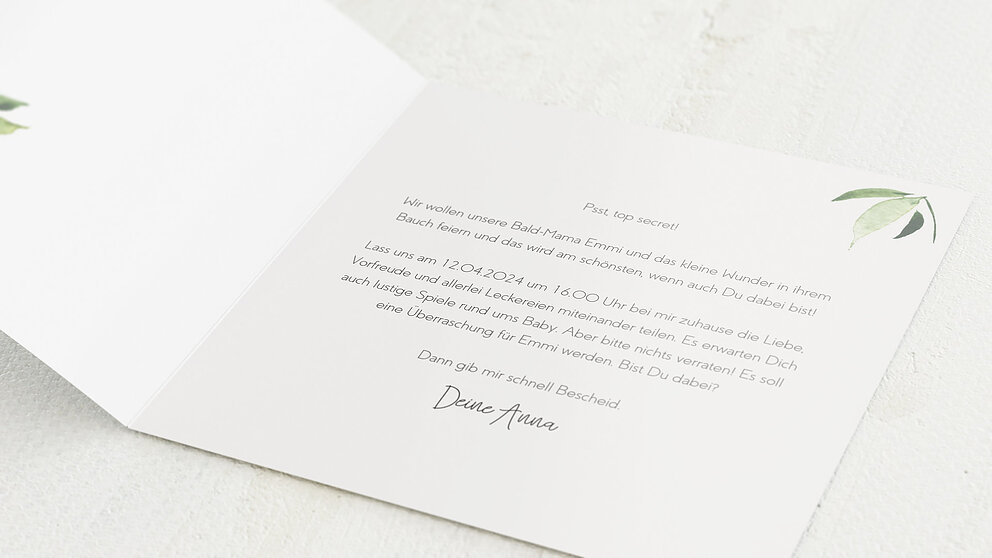 Psst, top secret!
Wir wollen unsere Bald-Mama Emmi und das kleine Wunder in ihrem
Bauch feiern und das wird am schönsten, wenn auch Du dabei bist!
Lass uns am 12.04.2024 um 16.00 Uhr bei mir zuhause die Liebe,
Vorfreude und allerlei Leckereien miteinander teilen. Es erwarten Dich
auch lustige Spiele rund ums Baby. Aber bitte nichts verraten! Es soll
eine Überraschung für Emmi werden. Bist Du dabei?
Dann gib mir schnell Bescheid.
Deine Anna